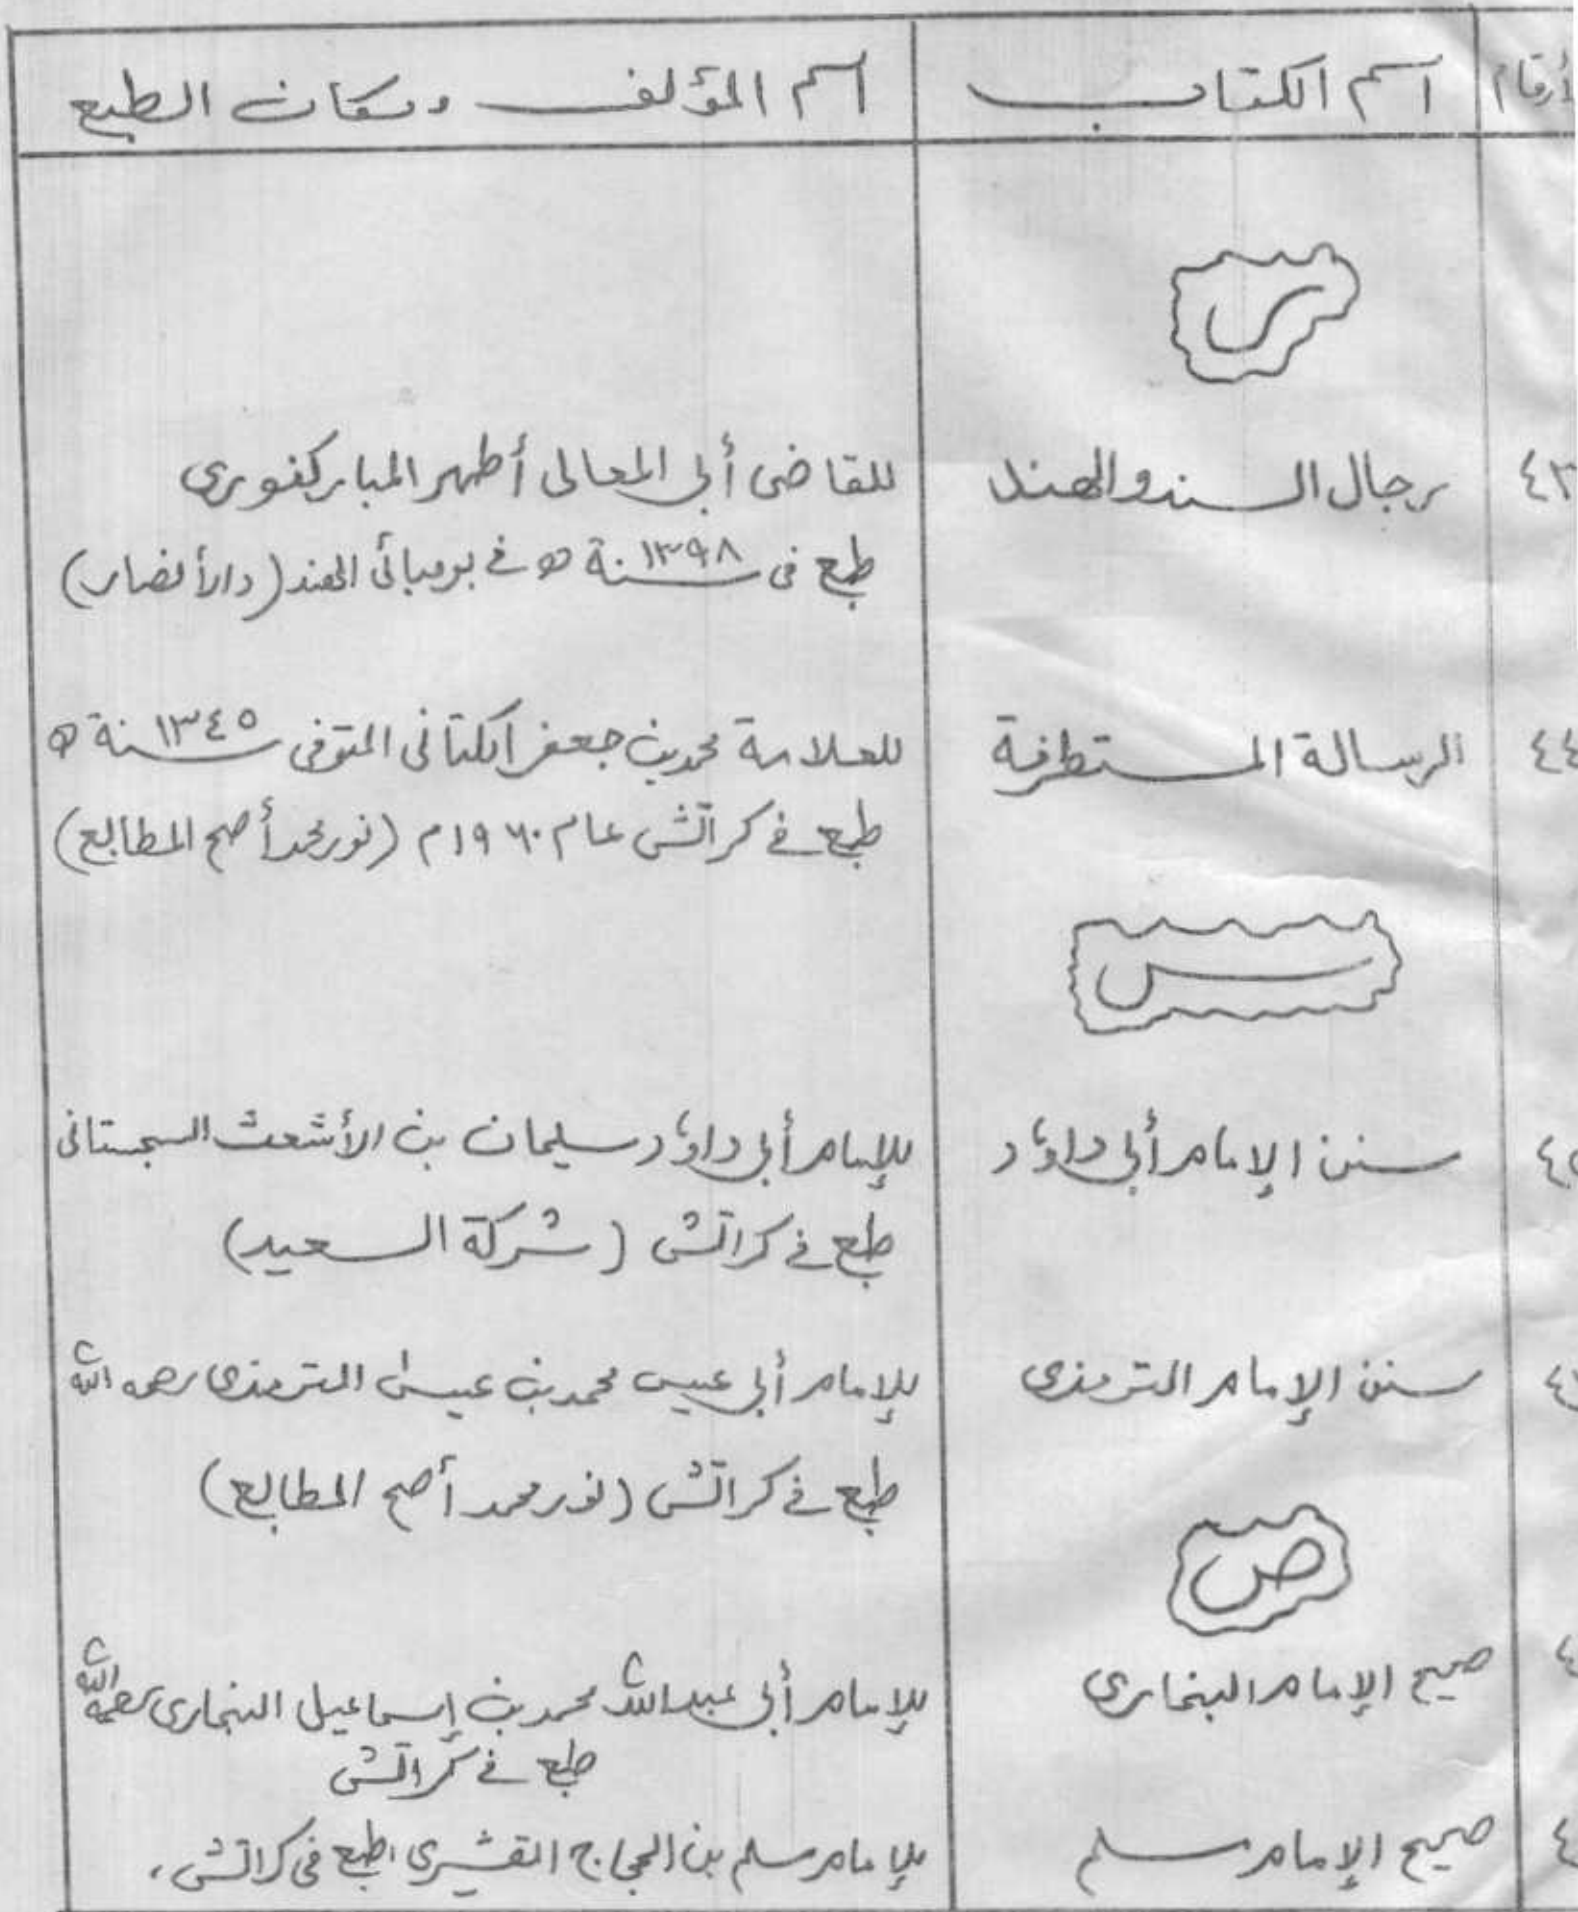 أرقام اسم الكتاب اسم المؤلف ومكان الطبع
ر
٤٣ رجال السند والهند للقاضى أبى المعالى أطهر المباركفورى
طبع فى سنة ١٣٩٨ ھ فى بومبائى الهند (دار الأنصار)
٤٤ الرسالة المستطرفة للعلامة محمد بن جعفر الكتانى المتوفى سنة ١٣٤٥ ھ
طبع فى كراتشى عام ١٩٦٠م (نور محمد أصح المطابع)
س
سنن الإمام أبى داؤد للإمام أبى داؤد سليمان بن الأشعث السجستانى
طبع فى كراتشى (شركة السعيد)
سنن الإمام الترمذى للإمام أبى عيسى محمد بن عيسى الترمذى رحمه الله
طبع فى كراتشى (نور محمد أصح المطابع)
ص
صحيح الإمام البخارى للإمام أبى عبدالله محمد بن إسماعيل البخارى رحمه الله
طبع فى كراتشى
صحيح الإمام مسلم للإمام مسلم بن الحجاج القشيرى، طبع فى كراتشى،